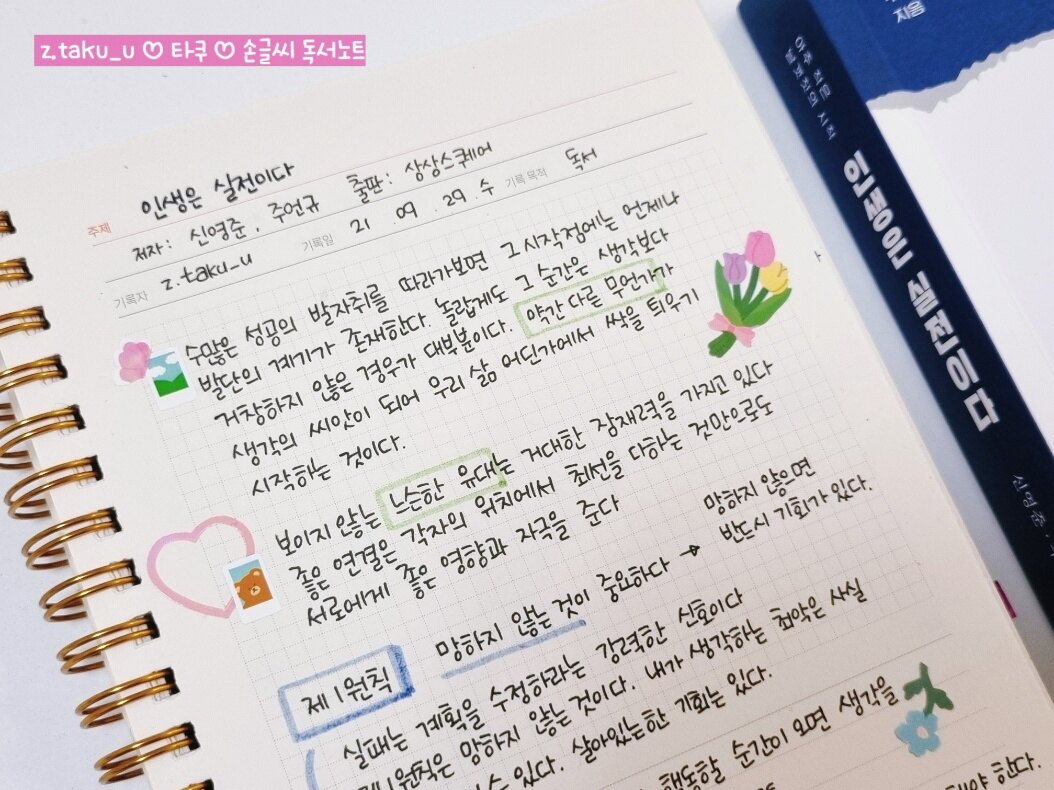 z.taku_u ♡ 타쿠 ♡ 손글씨 독서노트
주제 인생은 실전이다
저자: 신영준, 주언규 출판: 상상스퀘어
기록자 z.taku_u 기록일 21 09 .29. 수 기록 목적 독서
수많은 성공의 발자취를 따라가보면 그 시작점에는 언제나
발단의 계기가 존재한다. 놀랍게도 그 순간은 생각보다
거창하지 않은 경우가 대부분이다. 약간 다른 무언가가
생각의 씨앗이 되어 우리 삶 어딘가에서 싹을 틔우기
시작하는 것이다.
보이지 않는 느슨한 유대는 거대한 잠재력을 가지고 있다
좋은 연결은 각자의 위치에서 최선을 다하는 것만으로도
서로에게 좋은 영향과 자극을 준다
망하지 않는 것이 중요하다 → 망하지 않으면
반드시 기회가 있다.
제1원칙
실패는 계획을 수정하라는 강력한 신호이다
제1원칙은 망하지 않는 것이다. 내가 생각하는 최악은 사실
수 있다. 살아있는한 기회는 있다.
행동할 순간이 오면 생각을
해야 한다.
지음
아주 작은
날갯짓의 시작
인생은 실전이다
신영준